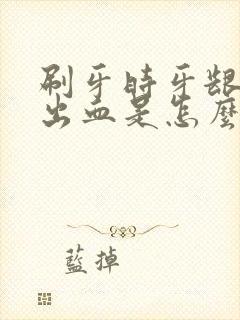 刷牙時牙龈
出血是怎麼
藍掉